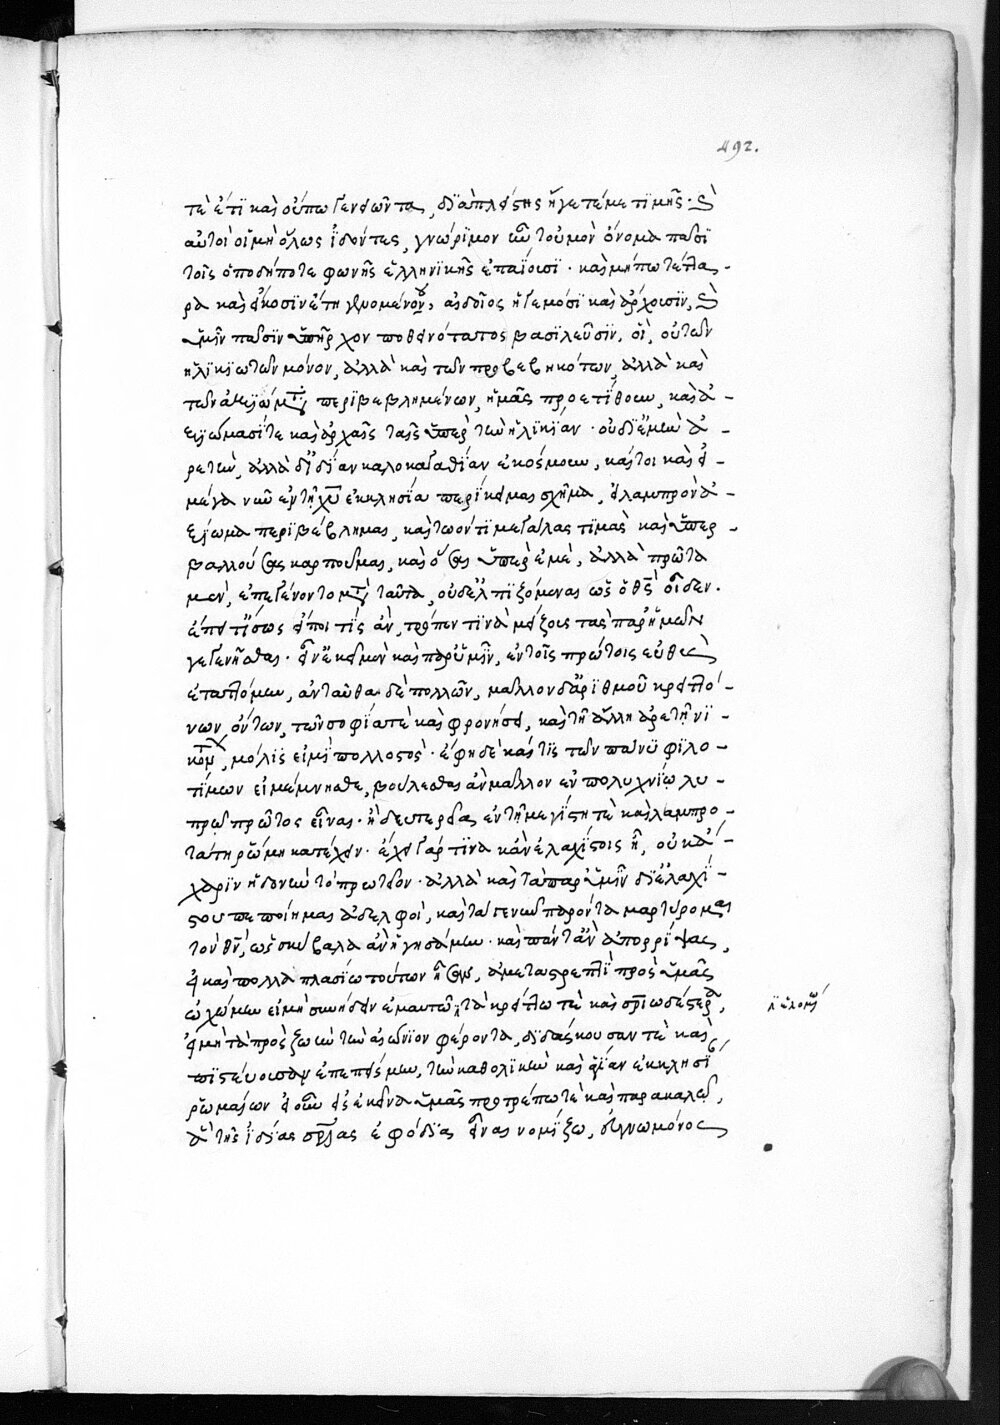 492.
τὲ ἔτι καὶ οὔπω γενειῶντα, διὰ πλείστης ἤγετέ με τιμῆς. καὶ
αὐτοὶ οἱ μὴ ὅλως ἰδόντες, γνώριμον ἦν τοὐμὸν ὄνομα πᾶσι
τοῖς ὁποσδήποτε φωνῆς ἑλληνικῆς ἐπαΐουσι. καὶ μήπω τέττα-
ρα καὶ εἴκοσιν ἔτη γενομένου, αἰδοῖος ἡγεμόσι καὶ ἄρχουσιν, καὶ
ὑμῖν πᾶσιν ὑπῆρχον ποθεινότατος βασιλεῦσιν, οἳ, οὐ τῶν
ἡλικιωτῶν μόνον, ἀλλὰ καὶ τῶν προβεβηκότων, ἀλλὰ καὶ
τῶν ἀξιώματι περιβεβλημένων, ἡμᾶς προετίθουν, καὶ ἀ-
ξιώμασί τε καὶ ἀρχαῖς ταῖς ὑπὲρ τὴν ἡλικίαν. οὐ δι' ἐμὴν ἀ-
ρετὴν, ἀλλὰ δι' ἰδίαν καλοκἀγαθίαν ἐκόσμουν, καίτοι καὶ εἰ
μέγα νῦν ἐν τῇ χυ ἐκκλησία περίκειμαι σχῆμα, λαμπρὸν ἀ-
ξίωμα περιβέβλημαι, καὶ τῷ ὄντι μεγάλας τιμὰς καὶ ὑπερ-
βαλλούσας καρποῦμαι, καὶ οὔσας ὑπὲρ ἐμὲ, ἀλλὰ πρῶτα
μὲν, ἐπεγένοντο μετὰ ταῦτα, οὐδ' ἐλπιζόμεναι ὡς ὁ θς οἶδεν.
ἔπειτ' ἴσως εἴποι τὶς ἂν, τρόπον τινὰ μείζους τὰς παρ' ἡμῶν
γεγενῆσθαι. ἐν ἐκεῖ μὲν καὶ παρ' ὑμῖν, ἐν τοῖς πρώτοις εὐθὺς
ἐταττόμην, ἐνταῦθα δὲ πολλῶν, μᾶλλον δ' ἀριθμοῦ κρειττό-
νων ὄντων, τῶν σοφία τὲ καὶ φρονήσει, καὶ τῇ ἄλλῃ ἀρετῇ
μόλις εἰμὶ πολλοστός. ἔφη δὲ καὶ τὶς τῶν πάνυ φιλο-
τίμων εἰ μέμνησθε, βούλεσθαι ἂν μᾶλλον ἐν πολυχνίῳ λυ-
πρῷ πρῶτος εἶναι. ἢ δευτερεῖα ἐν τῇ μεγίστῃ τὲ καὶ λαμπρο-
τάτῃ ῥώμῃ κατέχειν. ἔχει γάρ τινα κἂν ἐλαχίστοις ᾖ, οὐκ ἄ-
χαριν ἡδονὴν τὸ πρωτεῖον. ἀλλὰ καὶ τὰ παρ' ὑμῖν δι' ἐλαχί-
στου πεποίημαι ἀδελφοὶ, καὶ τὰ γενῦν παρόντα μαρτύρομαι
τὸν θν, ὡς σκύβαλα ἂν ἡγησάμην. καὶ πάντ' ἂν ἀπορρίψας,
εἰ καὶ πολλαπλασίω τούτων ἦσαν, ἀμεταστρεπτὶ πρὸς ὑμᾶς
ᾠχόμην εἰ μὴ συνῄδειν ἐμαυτῷ τὰ κρείττω τὲ καὶ σριωδέστερα,
εἰ μὴ τὰ πρὸς ζωὴν τὴν αἰώνιον φέροντα, διδάσκουσαν τὲ καὶ
πιστεύουσαν ἐπεπείσμην, τὴν καθολικὴν καὶ ἁγίαν ἐκκλησί
ῥωμαίων εἰ οὖν εἰς ἐκεῖνα ὑμᾶς προτρέπω τὲ καὶ παρακαλῶ,
ἃ τῆς ἰδίας σριας ἐφόδια εἶναι νομίζω, εὐγνωμόνως